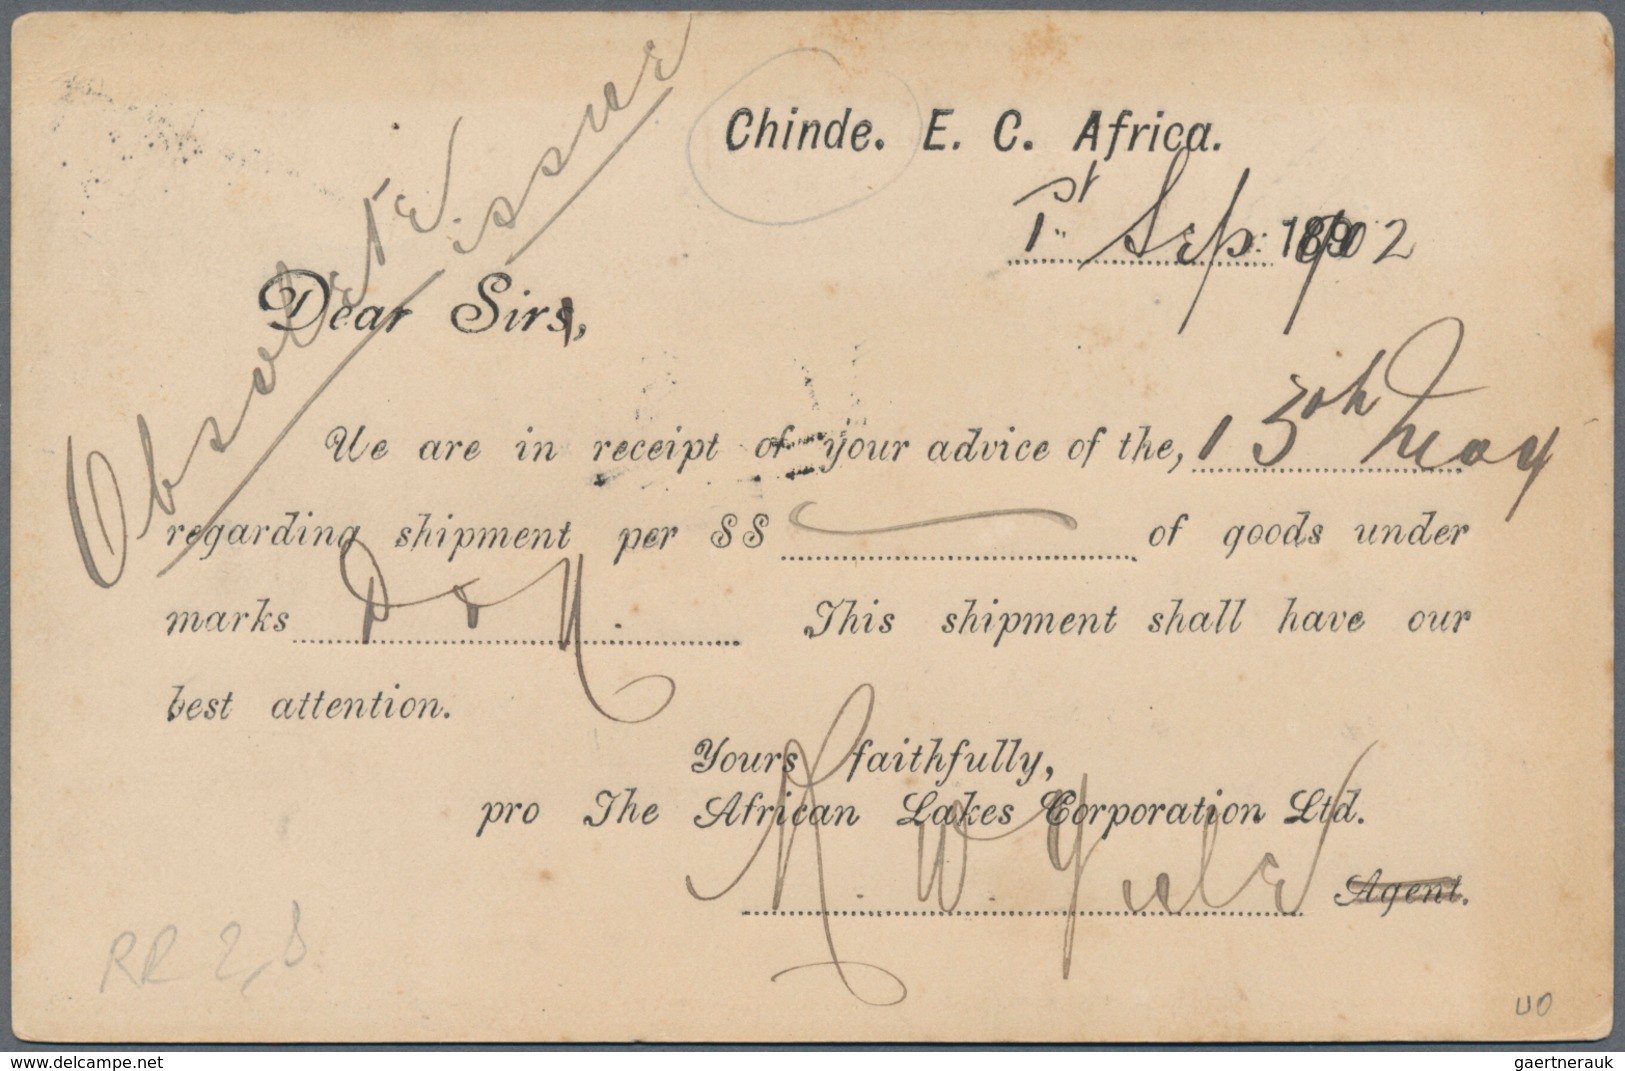 Obsolete issue
Chinde. E. C. Africa.
1st Sep: 1902
Dear Sir,
We are in receipt of your advice of the, 13th May
regarding shipment per SS of goods under
marks This shipment shall have our
best attention.
Yours faithfully,
pro The African Lakes Corporation Ltd.
R. W. Yule
Agent.
RR 2,
UO
www.delcampe.net
gaertnerauk